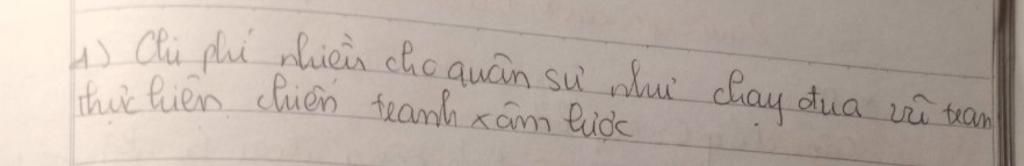 1) Chi phí nhiều cho quân sự như chạy đua vũ tran
thực hiện chiến tranh xâm lược